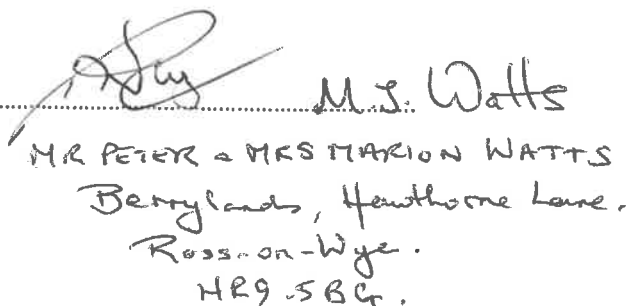 M.J. Watts
MR PETER & MRS MARION WATTS
Berrylands, Hawthorne Lane.
Ross-on-Wye.
HR9 5BG.